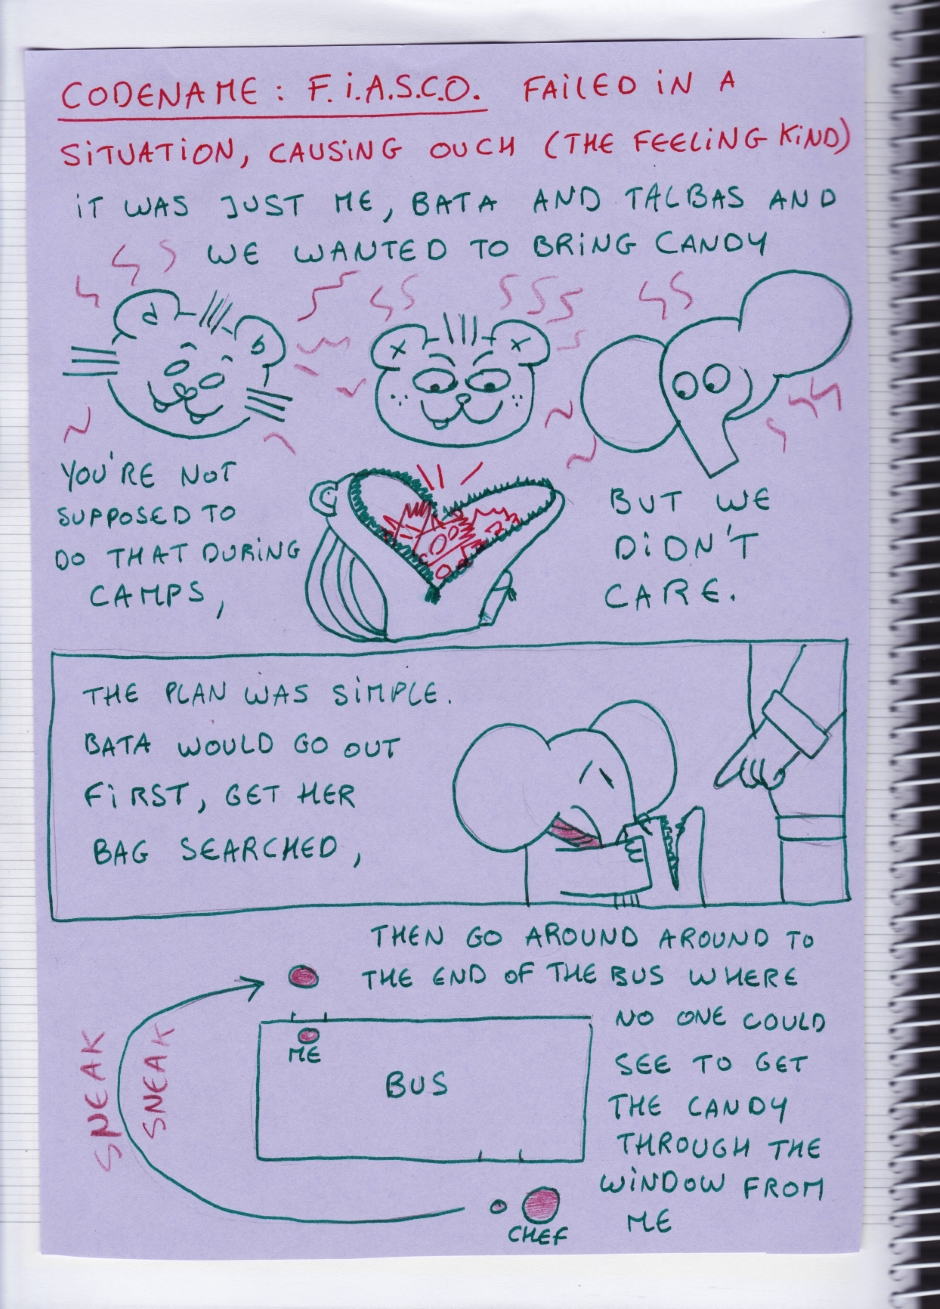 CODENAME: F.I.A.S.C.O. FAILED IN A
SITUATION, CAUSING OUCH (THE FEELING KIND)
IT WAS JUST ME, BATA AND TALBAS AND
WE WANTED TO BRING CANDY
YOU'RE NOT
SUPPOSED TO
DO THAT DURING
CAMPS,
BUT WE
DIDN'T
CARE.
THE PLAN WAS SIMPLE.
BATA WOULD GO OUT
FIRST, GET HER
BAG SEARCHED,
THEN GO AROUND AROUND TO
THE END OF THE BUS WHERE
NO ONE COULD
SEE TO GET
THE CANDY
THROUGH THE
WINDOW FROM
ME
SNEAK
SNEAK
ME
BUS
CHEF